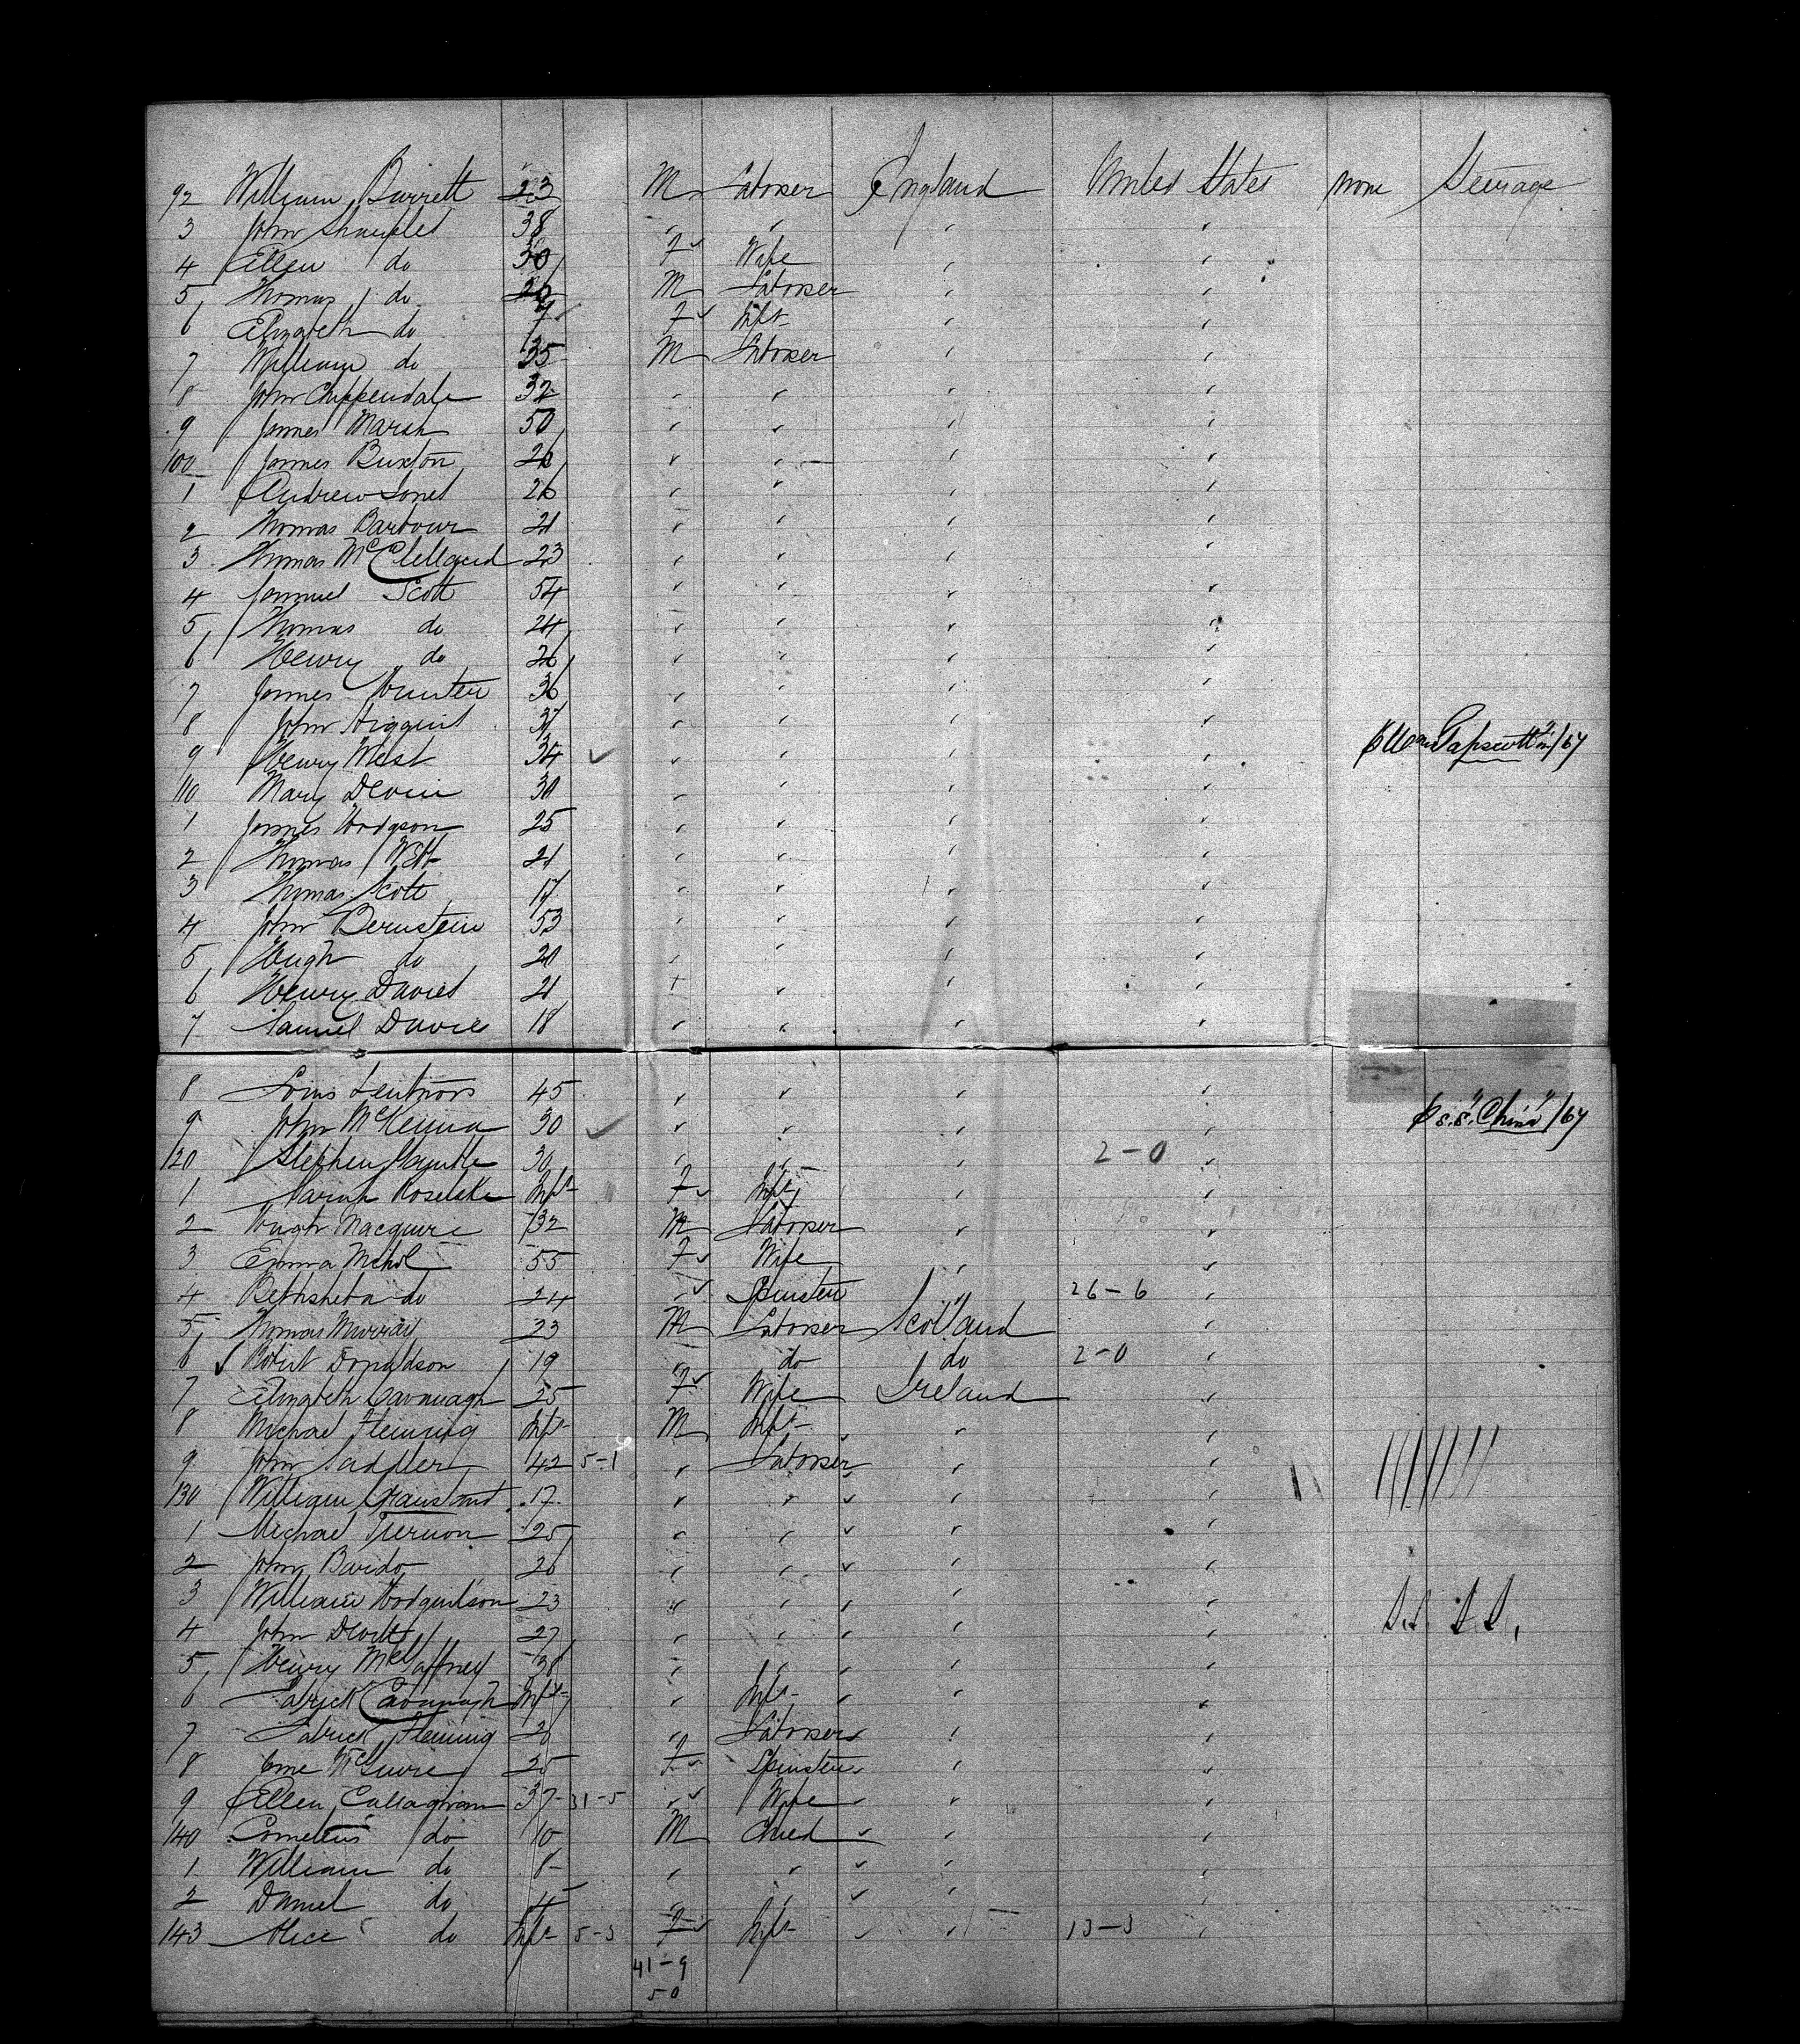 92 William Barrett 23 M Laborer England United States none Steerage
3 John Sharples 38 " " " "
4 Ellen do 30 F Wife " "
5 Thomas do 20 M Laborer " "
6 Elizabeth do F Inft " "
7 William do 35 M Laborer " "
8 John Chippendale 32 " " " "
9 James Marsh 50 " " " "
100 James Buxton " " " "
1 Andrew Jones 26 " " " "
2 Thomas Barbour 21 " " " "
3 Thomas McClelland 23 " " " "
4 Samuel Scott 54 " " " "
5 Thomas do 24 " " " "
6 Henry do 26 " " " "
7 James Hunter 36 " " " "
8 John Higgins " " " "
9 Henry West 34 " " " "
p Wm Tapscott /67
110 Mary Devin 30 " " " "
1 James Hodgson 25 " " " "
2 Thomas 21 " " " "
3 Thomas Scott 17 " " " "
4 John Bernstein 53 " " " "
5 Hugh do 20 " " " "
6 Henry Davies 21 " " " "
7 Samuel Davies 18 " " " "
8 Louis 45 " " " "
p s.s. "China" /67
9 John McKenna 30 " " " "
120 Stephen 30 " " " 2-0 "
1 Sarah Inft F Inft " "
2 Hugh Macguire 32 M Laborer " "
3 Emma Nichol 55 F Wife " "
4 Bethsheba do 24 " Spinster " 26-6 "
5 Thomas Murray 23 M Laborer Scotland "
6 Robert Donaldson 19 " do do 2-0 "
7 Elizabeth Cavanagh 25 F Wife Ireland "
8 Michael Fleming Inft M Inft " "
9 John Saddler 42 5-1 " Laborer " "
130 William 17 " " " "
1 Michael Tiernon 25 " " " "
2 John 26 " " " "
3 William Hodgkinson 23 " " " "
4 John Devitt 27 " " " "
5 Henry McGaffney " " " "
6 Patrick Cavanagh Inft " Inft " "
7 Patrick Fleming 20 " Laborer " "
8 Jane McGuire 25 F Spinster " "
9 Ellen Callaghan 37 31-5 " Wife " "
140 Cornelius do 10 M Child " "
1 William do 8 " " " "
2 Daniel do 4 " " " "
143 Alice do Inft 5-3 F Inft " 13-3 "
41-9
50